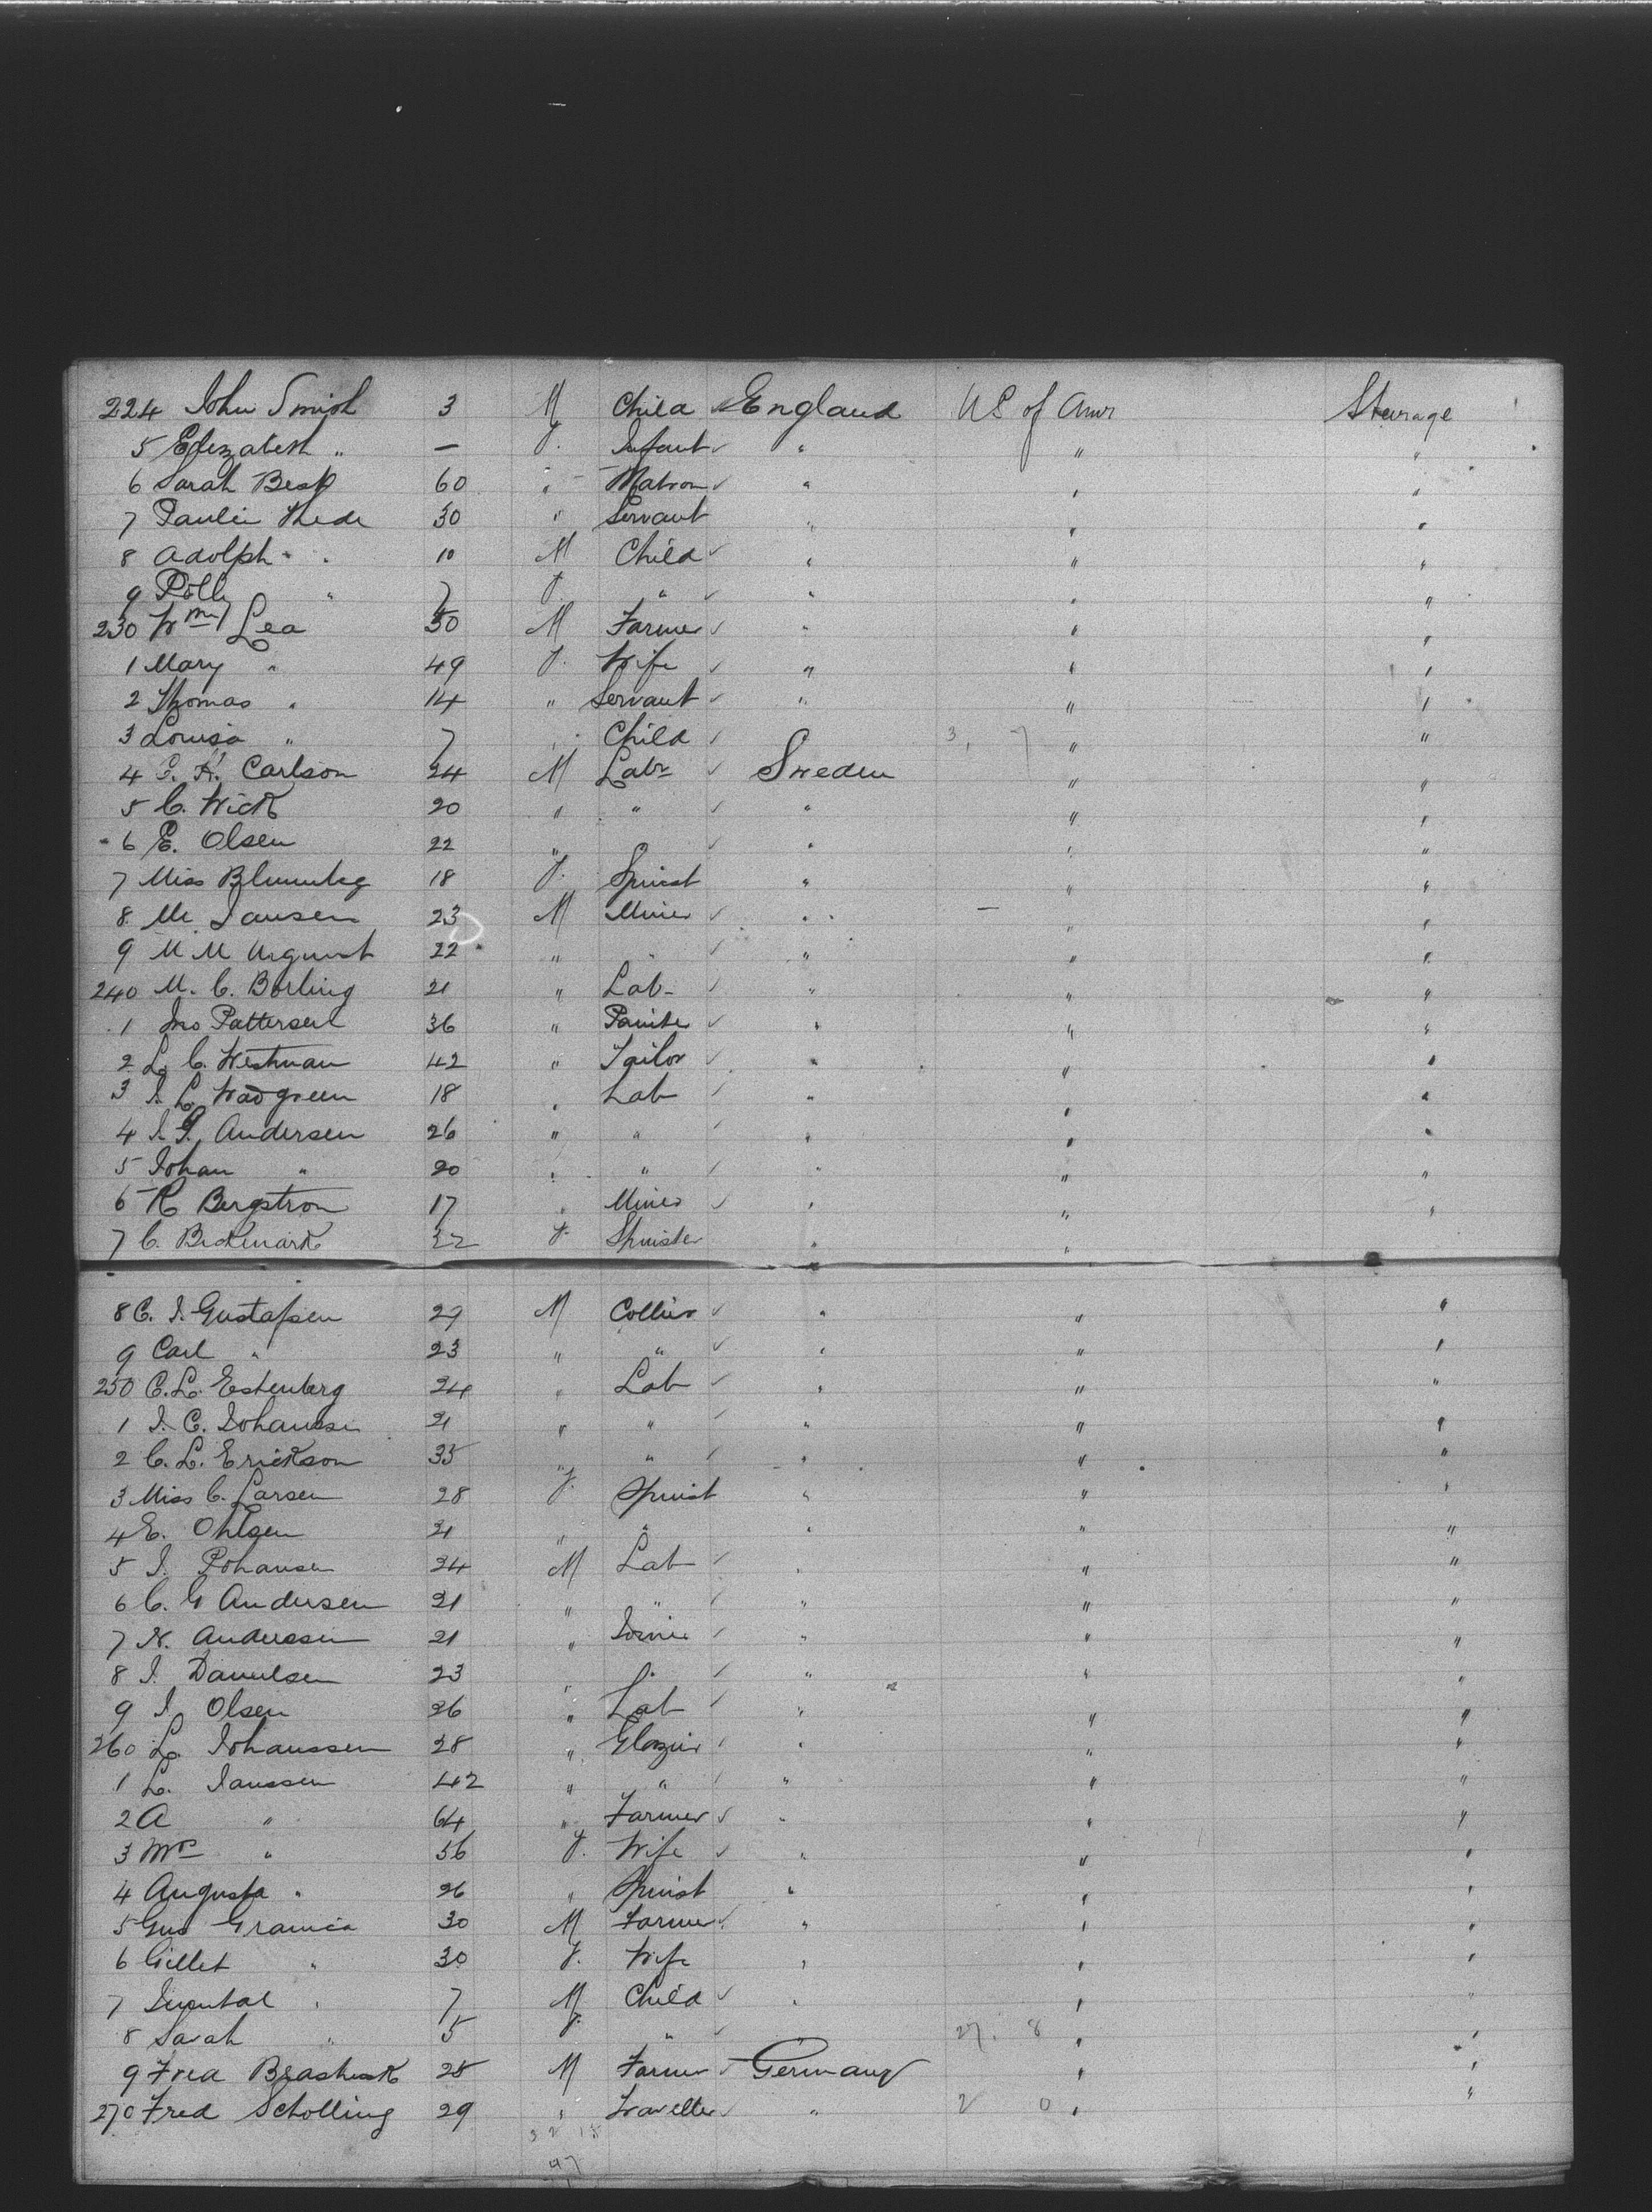 224 John Smith 3 M Child ✓ England US of Amr Sturage
5 Elizabeth " — F. Infant ✓ " " "
6 Sarah Best 60 " Matron ✓ " " "
7 Paulin Thede 30 " Servant " " "
8 Adolph " 10 M Child ✓ " " "
9 Polly " 7 F. " ✓ " " "
230 Wm Lea 50 M Farmer ✓ " " "
1 Mary " 49 F. Wife ✓ " " "
2 Thomas " 14 " Servant ✓ " " "
3 Louisa " 7 " Child ✓ 3, 7 " "
4 Carlson 24 M Labr ✓ Sweden " "
5 C. Wick 20 " " ✓ " " "
6 E. Olsen 22 " ✓ " " "
7 Miss 18 F. Spinst " " "
8 Jansen 23 M Miner ✓ " " "
9 M M 22 " " ✓ " " "
240 M. C. Borling 21 " Lab- ✓ " " "
1 Jno Pattersen 36 " Painter ✓ " " "
2 L. C. Westman 42 " Tailor ✓ " " "
3 I. L. Wadgreen 18 " Lab ✓ " " "
4 Andersen 26 " " ✓ " " "
5 Johan " 20 " " ✓ " " "
6 K Bergstron 17 " Miner ✓ " " "
7 C. Beckmark 22 F. Spinster " "
8 C. I. Gustafsen 29 M Collier ✓ " " "
9 Carl " 23 " " ✓ " " "
250 C. L. Estenberg 24 " Lab ✓ " " "
1 I. C. Johanssen 21 " " ✓ " " "
2 C. L. Erickson 35 " " ✓ " " "
3 Miss C. Larsen 28 F. Spinst " " "
4 E. Ohlsen 21 " " " " "
5 I. Johansen 24 M Lab ✓ " " "
6 C. G Andersen 21 " " ✓ " " "
7 N. Anderssen 21 " ✓ " " "
8 I. Danielsen 23 " " ✓ " " "
9 I. Olsen 26 " Lab ✓ " " "
260 L. Johanssen 28 " Glazier ✓ " " "
1 L. Janssen 42 " " ✓ " " "
2 A " 64 " Farmer ✓ " " "
3 Mrs " 56 F. Wife ✓ " " "
4 Augusta " 26 " Spinst " " "
5 Gus 30 M Farmer ✓ " " "
6 Gillet " 30 F. Wife " " "
7 " 7 M Child ✓ " " "
8 Sarah " 5 F. " ✓ " 27. 8 " "
9 Fred 25 M Farmer ✓ Germany " "
270 Fred Scholling 29 " Traveller ✓ " 2 0 " "
97